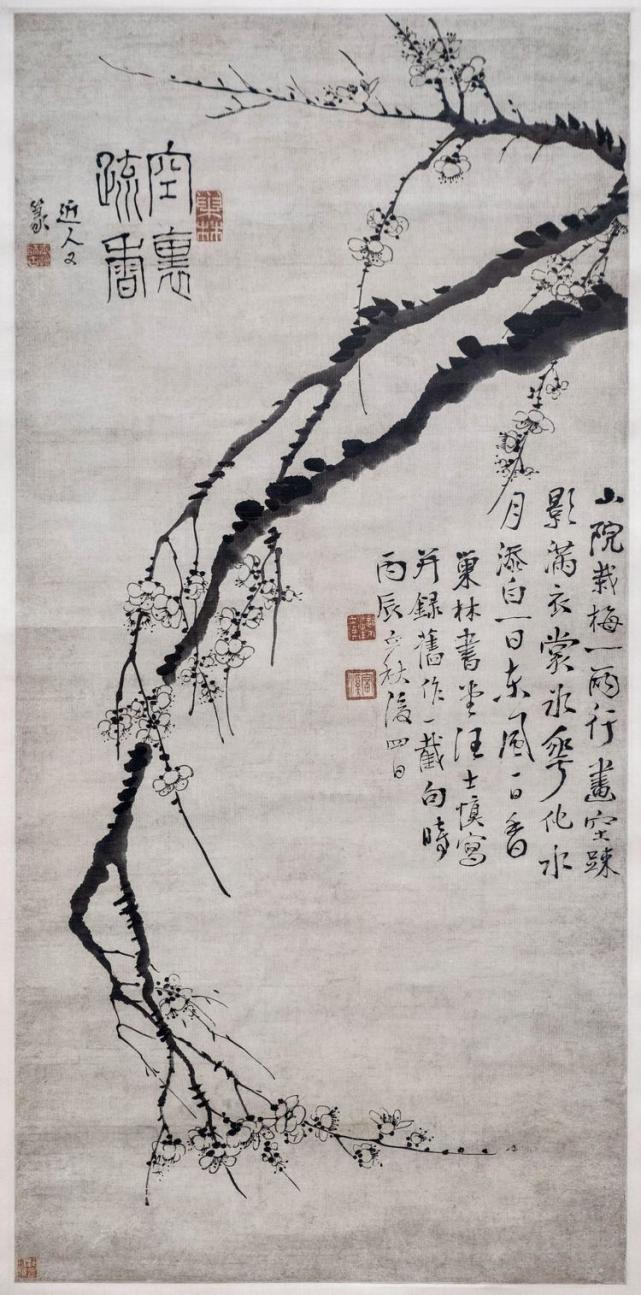 山院栽梅一兩行畫空踈
影滿衣裳冰華化水
月添白一日東風一日香
巢林書堂汪士慎寫
并録舊作一截句時
丙辰立秋後四日
巢林
空裏
疏香
近人又
篆